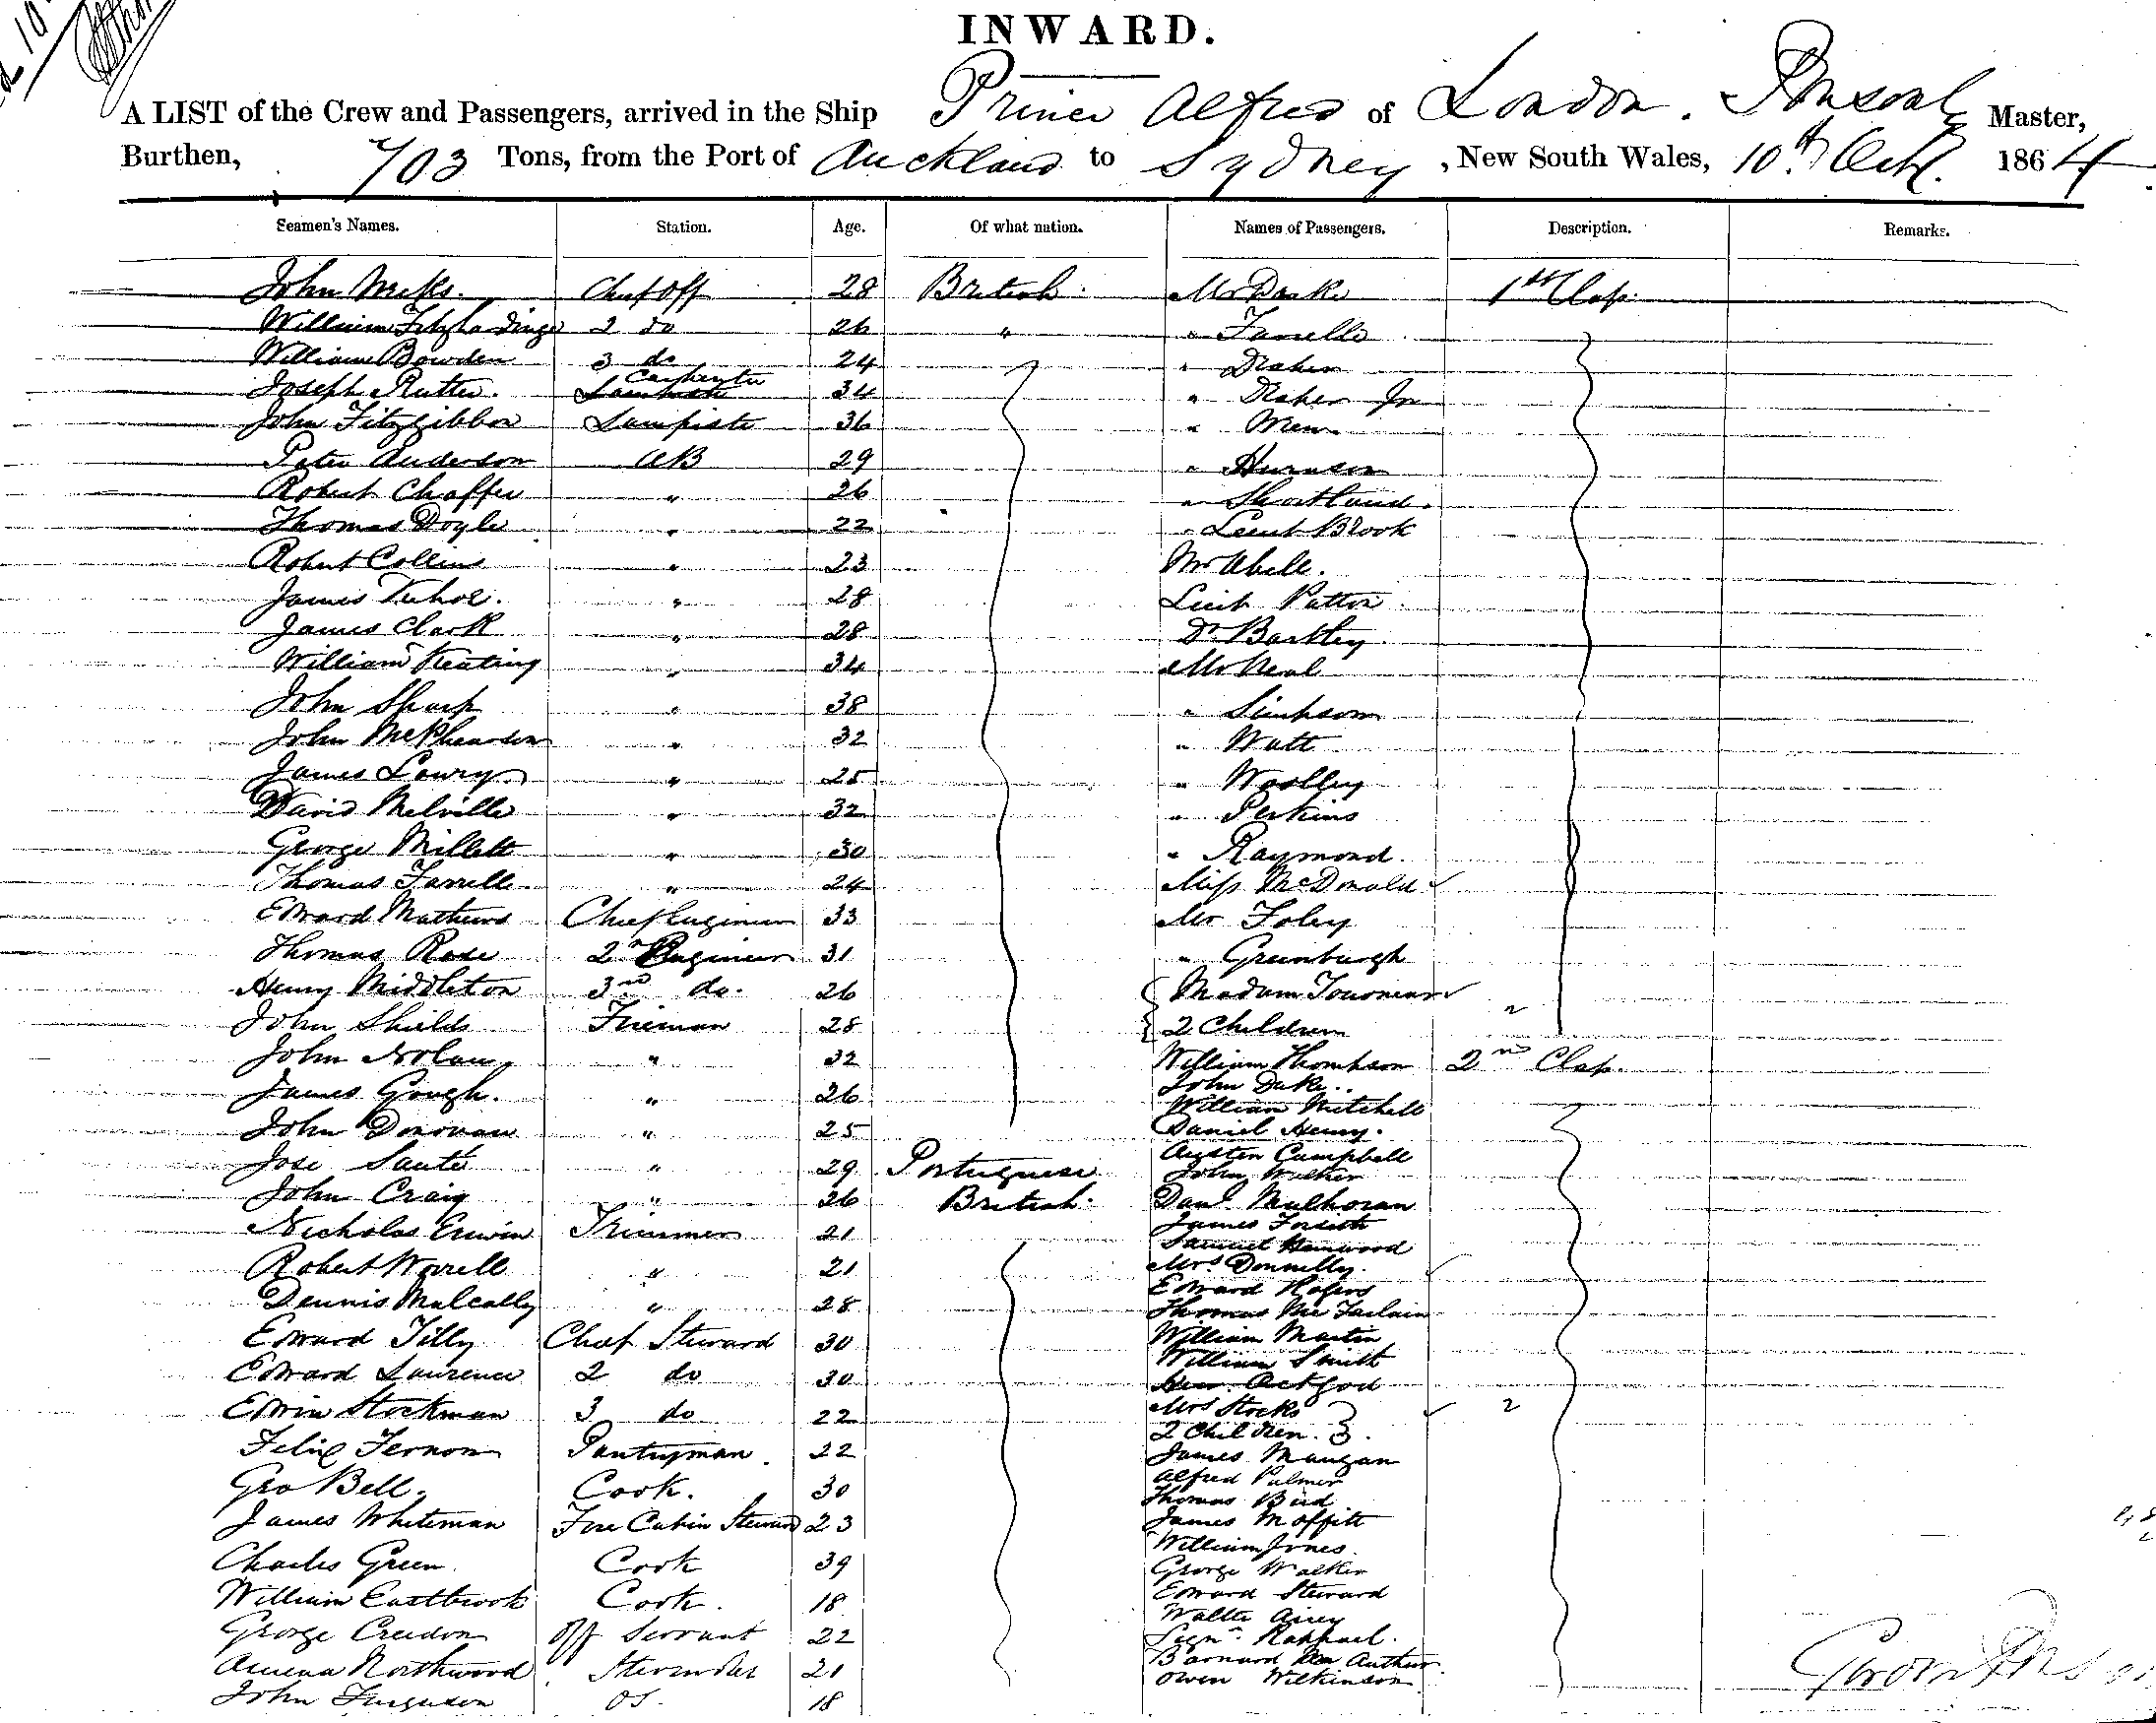 INWARD.
A LIST of the Crew and Passengers, arrived in the Ship Prince Alfred of London. Master,
Burthen, 703 Tons, from the Port of Auckland to Sydney, New South Wales, 10th Octr. 1864
Seamen's Names. Station. Age. Of what nation. Names of Passengers. Description. Remarks.
John Meeks. Chief Off 28 British Mr 1st Class
William Fitzhardinge 2 do 26 " " Farrelle
William Bowden 3 do 24 "
Joseph Rutter. Carpenter 34 " Jn
John Fitzgibbon Lampiste 36 "
Peter Anderson AB 29 "
Robert Chaffer " 26 " Shortland.
Thomas Doyle " 22 " Lieut Brook
Robert Collins " 23 Mr Abell.
James " 28 Lieut Patton
James Clark " 28 Dr Barkley
William Keating " 34 Mr Neal
John Sharp " 38 " Simpson
John McPhearson " 32 " Watt
James Lowry " 25 " Woolley
David Melville " 32 " Perkins
George Millett " 30 " Raymond.
Thomas Farrelle " 24 Miss McDonald
Edward Mathews Chief Engineer 33 Mr Foley
Thomas Rose 2nd Engineer 31 " Greenburgh
Henry Middleton 3rd do. 26 Madam
John Shields Fireman 28 2 Children 2
John Nolan " 32 William Thompson 2nd Class.
John Duke.
James Gough. " 26 William Mitchell
John Donovan " 25 Daniel Henry.
Austen Campbell
Jose Sauté " 29 Portuguese John Walker
John Craig " 26 British Danl Mulhoran
Nicholas Erwin Trimmer 21 James Forsith
Samuel Henwood
Robert Worrell " 21 Mrs Donnelly.
Edward Rogers
Dennis Mulcally " 28 Thomas Mc Farlain
Edward Tilly Chief Steward 30 William Martin
William Smith
Edward Laurence 2 do 30
Edwin Stockman 3 do 22 Mrs Stocks 2
2 Children.
Felix Fernon Pantryman 22 James Mangan
Alfred Palmer
Geo Bell. Cook. 30 Thomas Bird
James Whiteman Fore Cabin Steward 23 James Moffitt
William Jones.
Charles Green Cook 39 George Walker
William Eastbrook Cook. 18 Edward Steward
Walter Airey
George Creedon Off Servant 22 Signr. Raphael.
Amena Northwood Stewardess 21 Barnard Mc Arthur
Owen Wilkinson
John Ferguson OS. 18